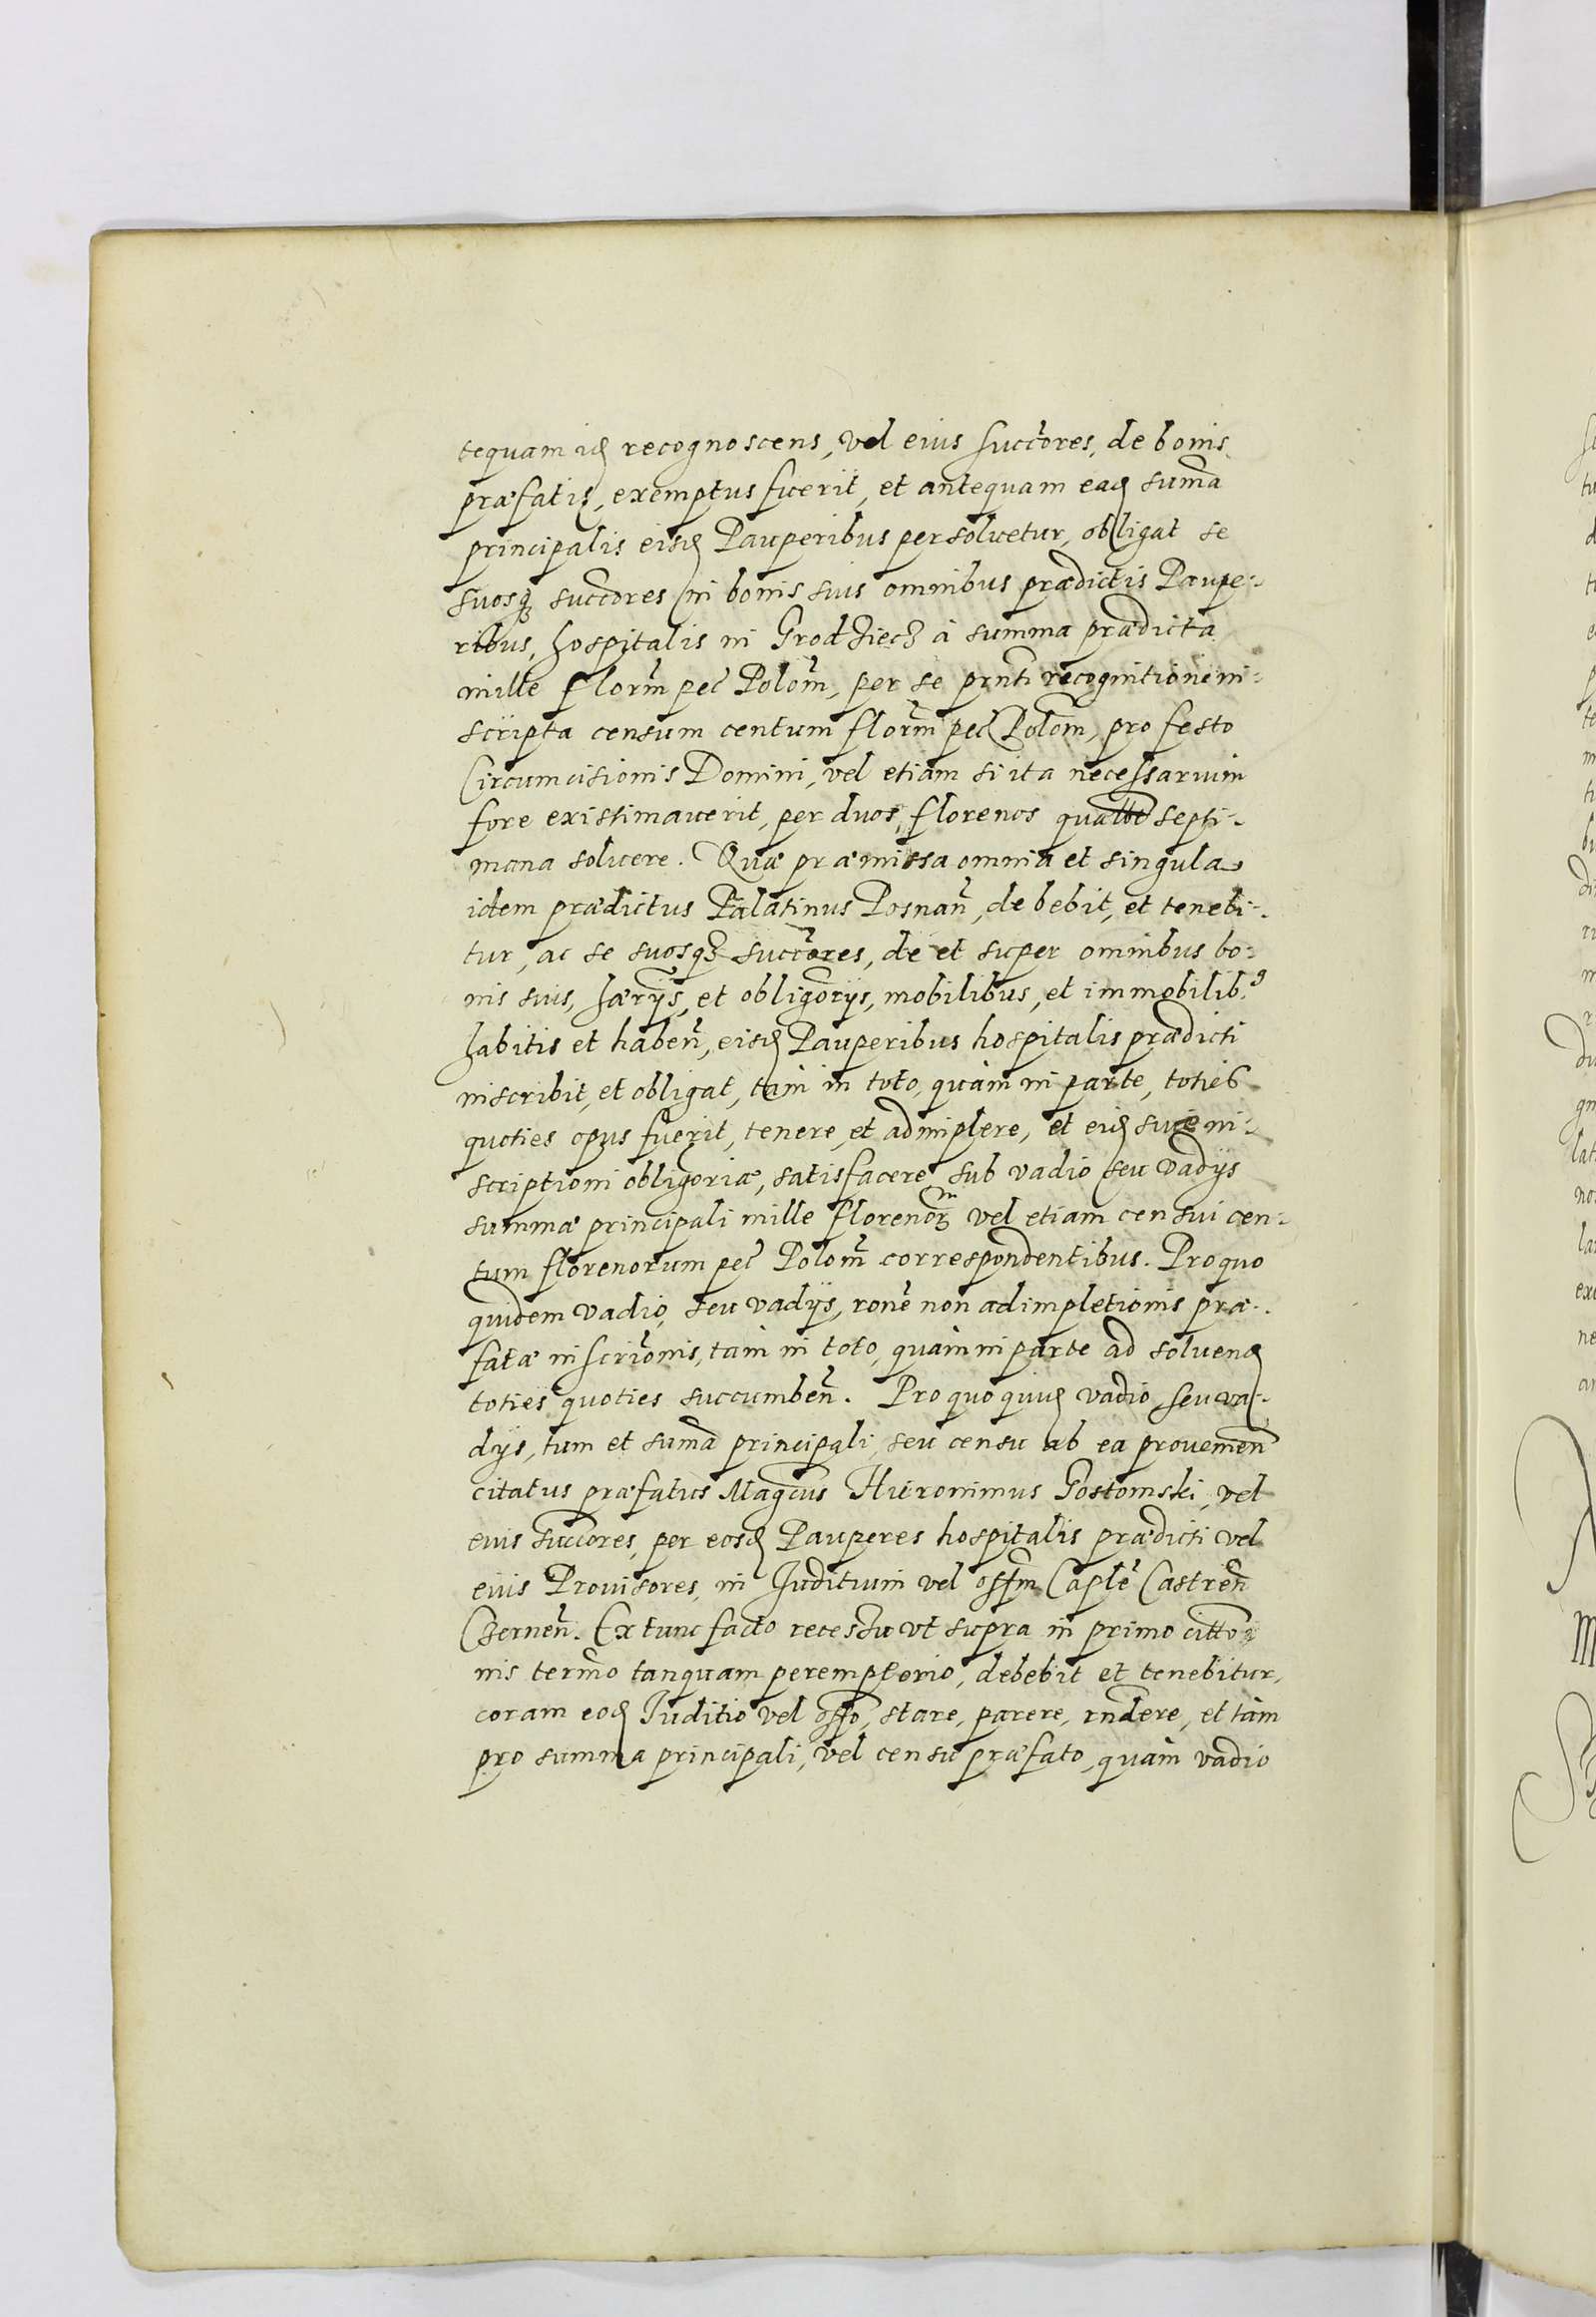 tequam id recognoscens, vel eius succores, de bonis
præfatis, exemptus fuerit, et antequam ead suma
principalis eisd Pauperibus persoluetur, obligat se
suosq succores in bonis suis omnibus prædictis Paupe-
ribus, hospitalis in Grodziecz à summa prædicta
mille florm pec Polom, per se prnti recognitione in-
scripta censum centum florm pec Polom, pro festo
Circumcisionis Domini, vel etiam si ita necessarium
fore existimaverit, per duos, florenos qualbt septi-
mana soluere. Quæ præmissa omnia et singula
idem prædictus Palatinus Posnan, debebit, et tenebi-
tur, ac se suosq succores, de et super omnibus bo-
nis suis, hærijs, et obligorijs, mobilibus, et immobilib9
habitis et haben, eisd Pauperibus hospitalis prædicti
inscribit, et obligat, tam in toto, quàm in parte, toties
quoties opus fuerit, tenere, et adimplere, et eid suæ in-
scriptioni obligoriæ, satisfacere sub vadio seu vadijs
summæ principali mille florenor vel etiam censui cen-
tum florenorum pec Polom correspondentibus. Pro quo
quidem vadio, seu vadijs, rone non adimpletionis præ-
fatæ inscrionis, tam in toto, quàm in parte ad soluend
toties quoties succumben. Pro quo quid vadio, seu va-
dijs, tum et suma principali, seu censu ab ea provenien
citatus præfatus Magcus Hieronimus Gostomski, vel
eius succores, per eosd Pauperes hospitalis prædicti vel
eius Prouisores, in Juditium vel offm Caple Castren
Czernen. Ex tunc facto recessu vt supra in primo citto-
nis termo tanquam peremptorio, debebit et tenebitur,
coram eod Juditio vel offo, stare, parere, rndere, et tàm
pro summa principali, vel censu præfato, quàm vadio